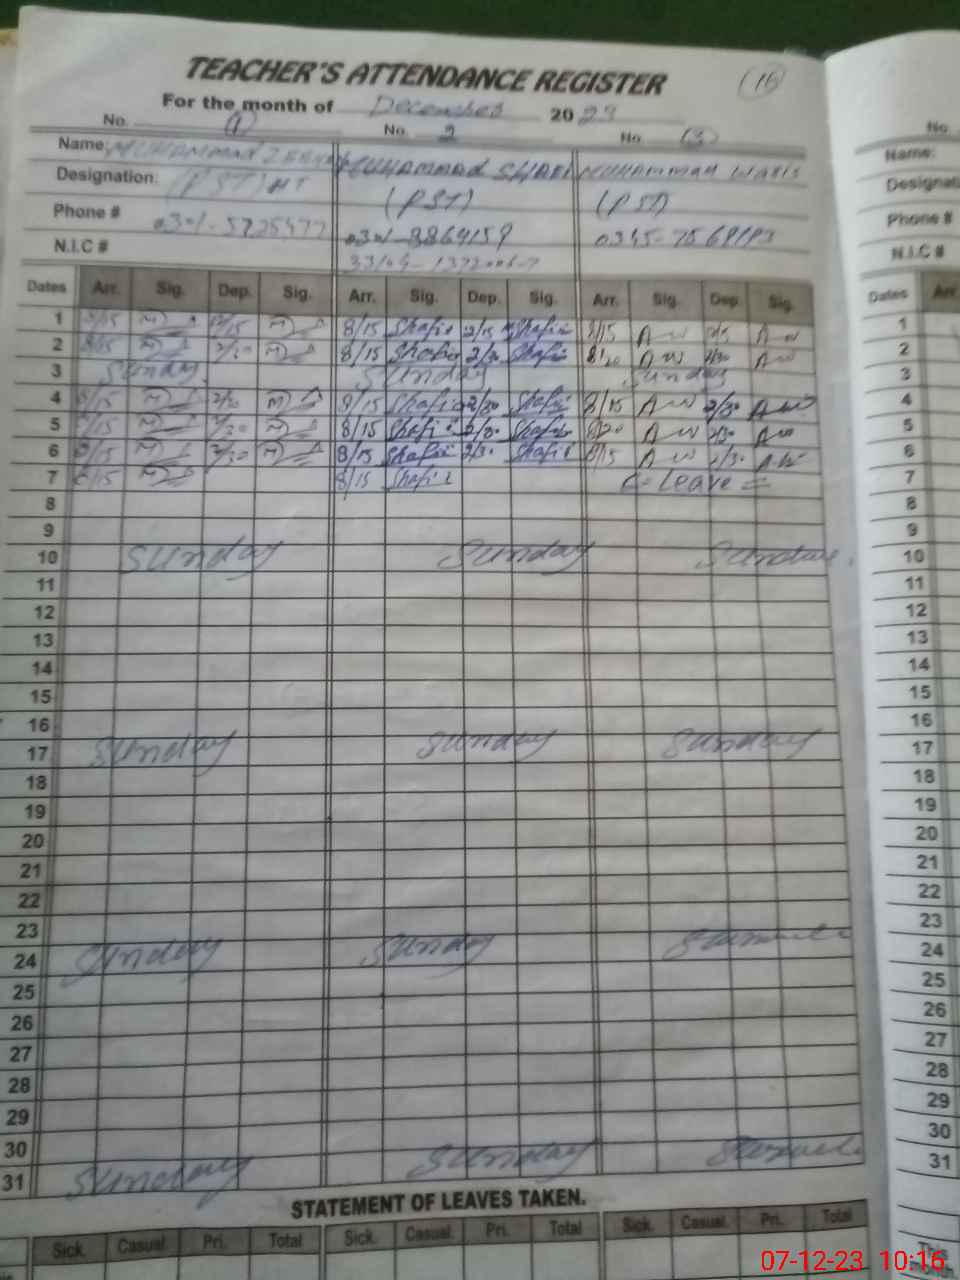 TEACHER'S ATTENDANCE REGISTER (16)
For the month of December 2023
No. (1) No. 2 No. (3)
Name: MUHAMMAD MUHAMMAD SHAFI MUHAMMAD WARIS
Designation: (PST) HT (PST) (PST)
Phone #
N.I.C #
Dates Arr. Sig. Dep. Sig. Arr. Sig. Dep. Sig. Arr. Sig. Dep. Sig.
1 8/15 8/15 Shafi 2/15 Shafi 8/15
2 8/15 2/30 8/15 Shafi 2/30 Shafi 8/20 2/30
3 Sunday Sunday Sunday
4 8/15 2/30 8/15 Shafi 2/30 Shafi 8/15 2/30
5 8/15 2/30 8/15 Shafi 2/30 Shafi 8/20 2/30
6 8/15 2/30 8/15 Shafi 2/30 Shafi 8/15 2/30
7 8/15 8/15 Shafi Leave
8
9
10 Sunday Sunday
11
12
13
14
15
16
17 Sunday Sunday Sunday
18
19
20
21
22
23
24 Sunday Sunday
25
26
27
28
29
30
31 Sunday Sunday
STATEMENT OF LEAVES TAKEN.
Sick. Casual. Pri. Total Sick. Casual. Pri. Total Sick. Casual. Pri. Total
No.
Name:
Designat
Phone #
N.I.C #
Dates Arr
1
2
3
4
5
6
7
8
9
10
11
12
13
14
15
16
17
18
19
20
21
22
23
24
25
26
27
28
29
30
31
This
month
07-12-23 10:16